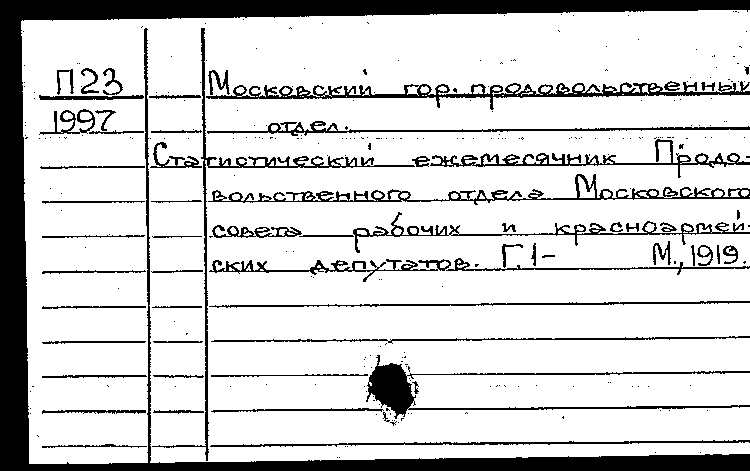 П23 Московский гор. продовольственный
1997 отдел.
Статистический ежемесячник Продо-
вольственного отдела Московского
совета рабочих и красноармей-
ских депутатов. Г. 1- М., 1919.